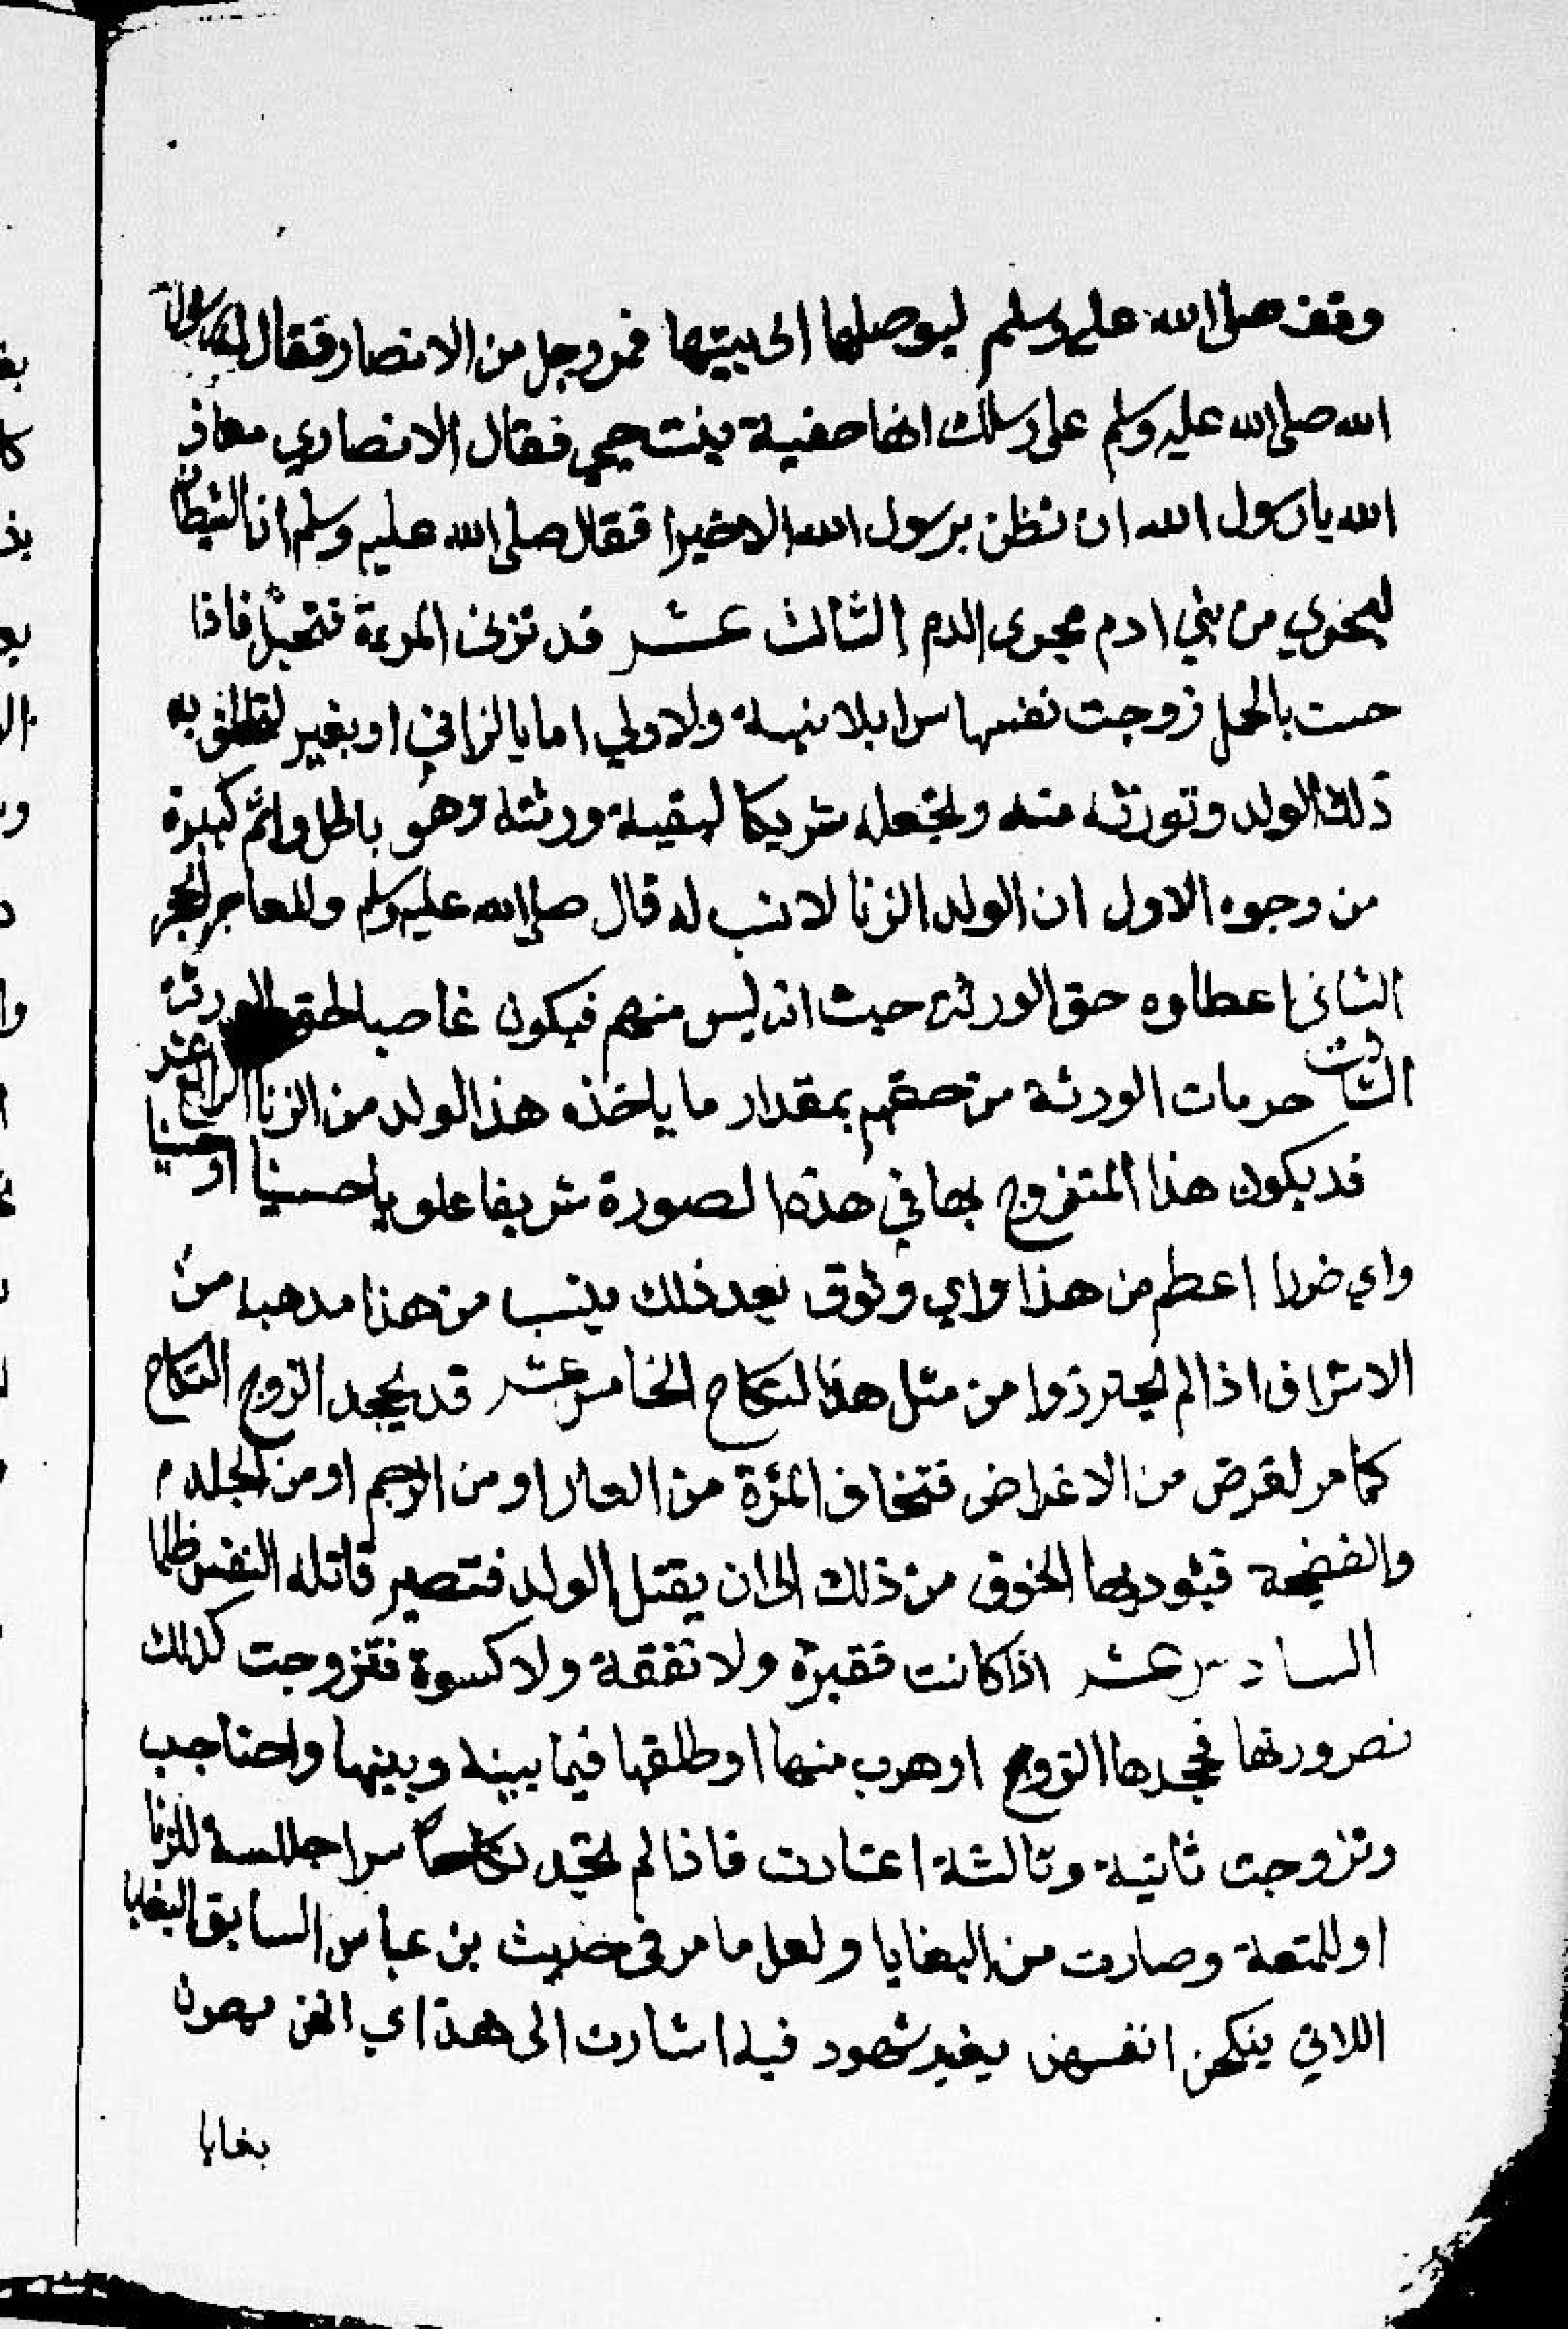 وقف صلى الله عليه وسلم ليوصلها الى بيتها فمر رجل من الانصار فقال له رسول
الله صلى الله عليه وسلم على رسلك انها صفية بنت حيي فقال الانصاري معاذ
الله يا رسول الله ان نظن برسول الله الا خيرا فقال صلى الله عليه وسلم ان الشيطان
ليجري من بني ادم مجرى الدم الثالث عشر قد تزني المرءة فتحبل فاذا
حست بالحمل زوجت نفسها سرا بلا بينة ولا ولي اما بالزاني او بغير لتلحق به
ذلك الولد وتورثه منه وتجعله شريكا لبقية ورثته وهو باطل واثم كبيرة
من وجوه الاول ان الولد الزنا لا نسب له قال صلى الله عليه وسلم وللعاهر الحجر
الثاني اعطاوه حق الورثة حيث انه ليس منهم فيكون غاصبا لحق الورثة
الثالث حرمات الورثة من حقهم بمقدار ما ياخذه هذ الولد من الزنا الرابع عشر
قد يكون هذا المتزوج بها في هذه الصورة شريفا علويا حسينيا او حسنيا
واي ضررا اعظم من هذا واي وثوق بعد ذلك بنسب من هذا مذهبه من
الاشراف اذا لم يحترزوا من مثل هذا النكاح الخامس عشر قد يجحد الزوج النكاح
كما مر لغرض من الاغراض فتخاف المرءة من العار او من الرجم او من الجلد
والفضيحة فيئوديها الخوف من ذلك الى ان يقتل الولد فتصير قاتلة النفس ظلما
السادس عشر اذا كانت فقيرة ولا نفقة ولا كسوة فتزوجت كذلك
لضرورتها فجحدها الزوج او هرب منها او طلقها فيما بينه وبينها واحتاجب
وتزوجت ثانية وثالثة اعتادت فاذا لم تجد نكاحا سرا جلست للزنا
او للمتعة وصارت من البغايا ولعل ما مر في حديث بن عباس السابق البغايا
اللاتي ينكحن انفسهن بغير شهود فيه اشارت الى هذا اي انهن يصرن
بغايا